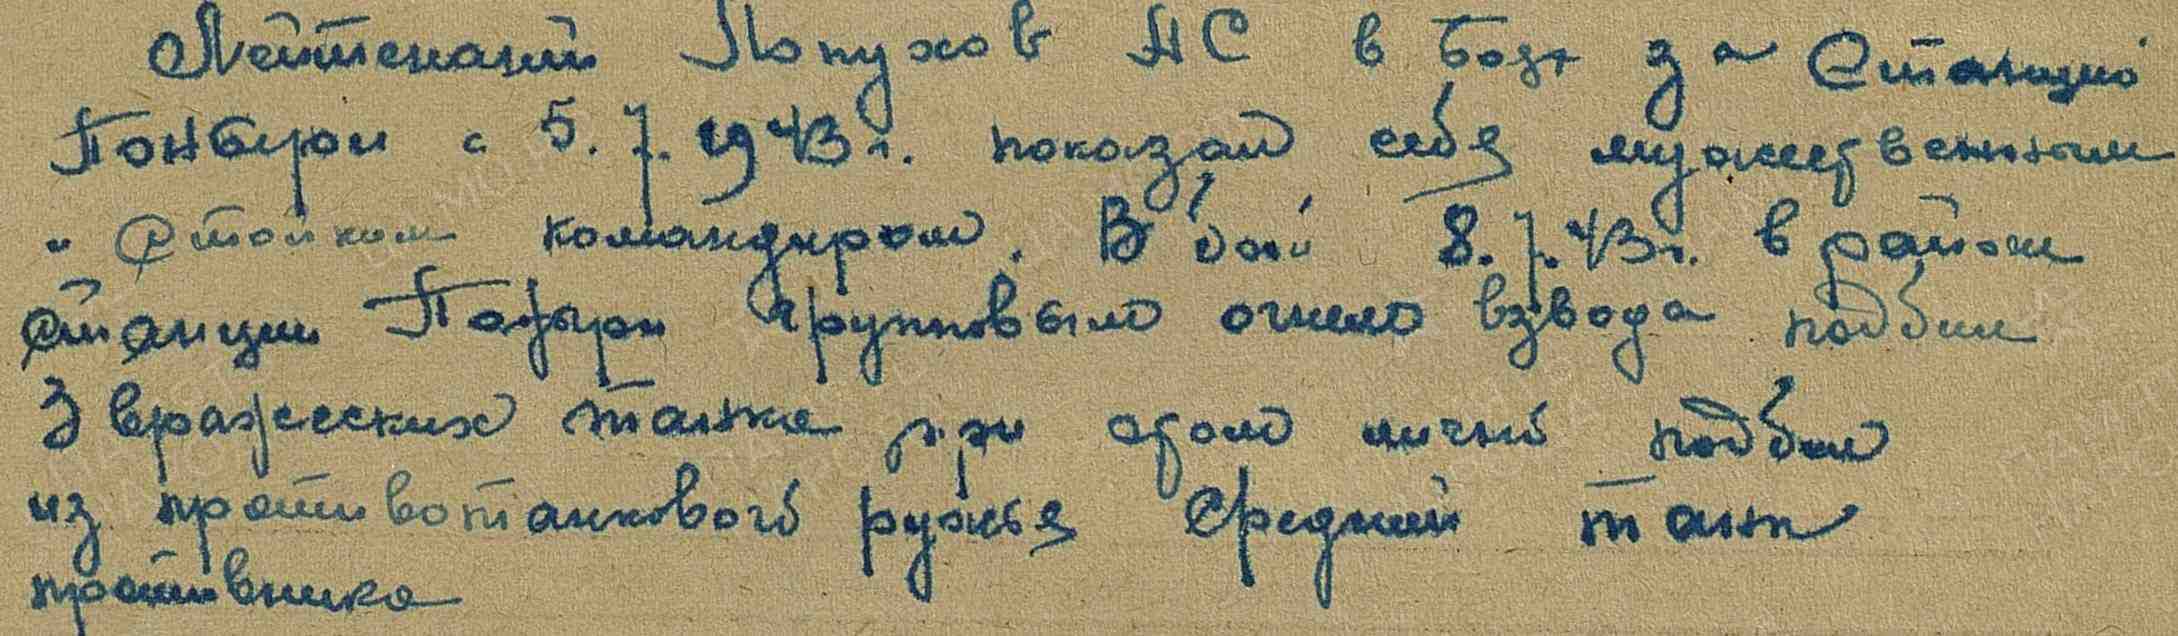 Лейтенант Лопухов АС в боях за станцию
Поныри с 5.7.1943г. показал себя мужественным
и стойким командиром. В бою 8.7.43г. в районе
станции Поныри групповым огнем взвода подбил
3 вражеских танка при этом лично подбил
из противотанкового ружья средний танк
противника